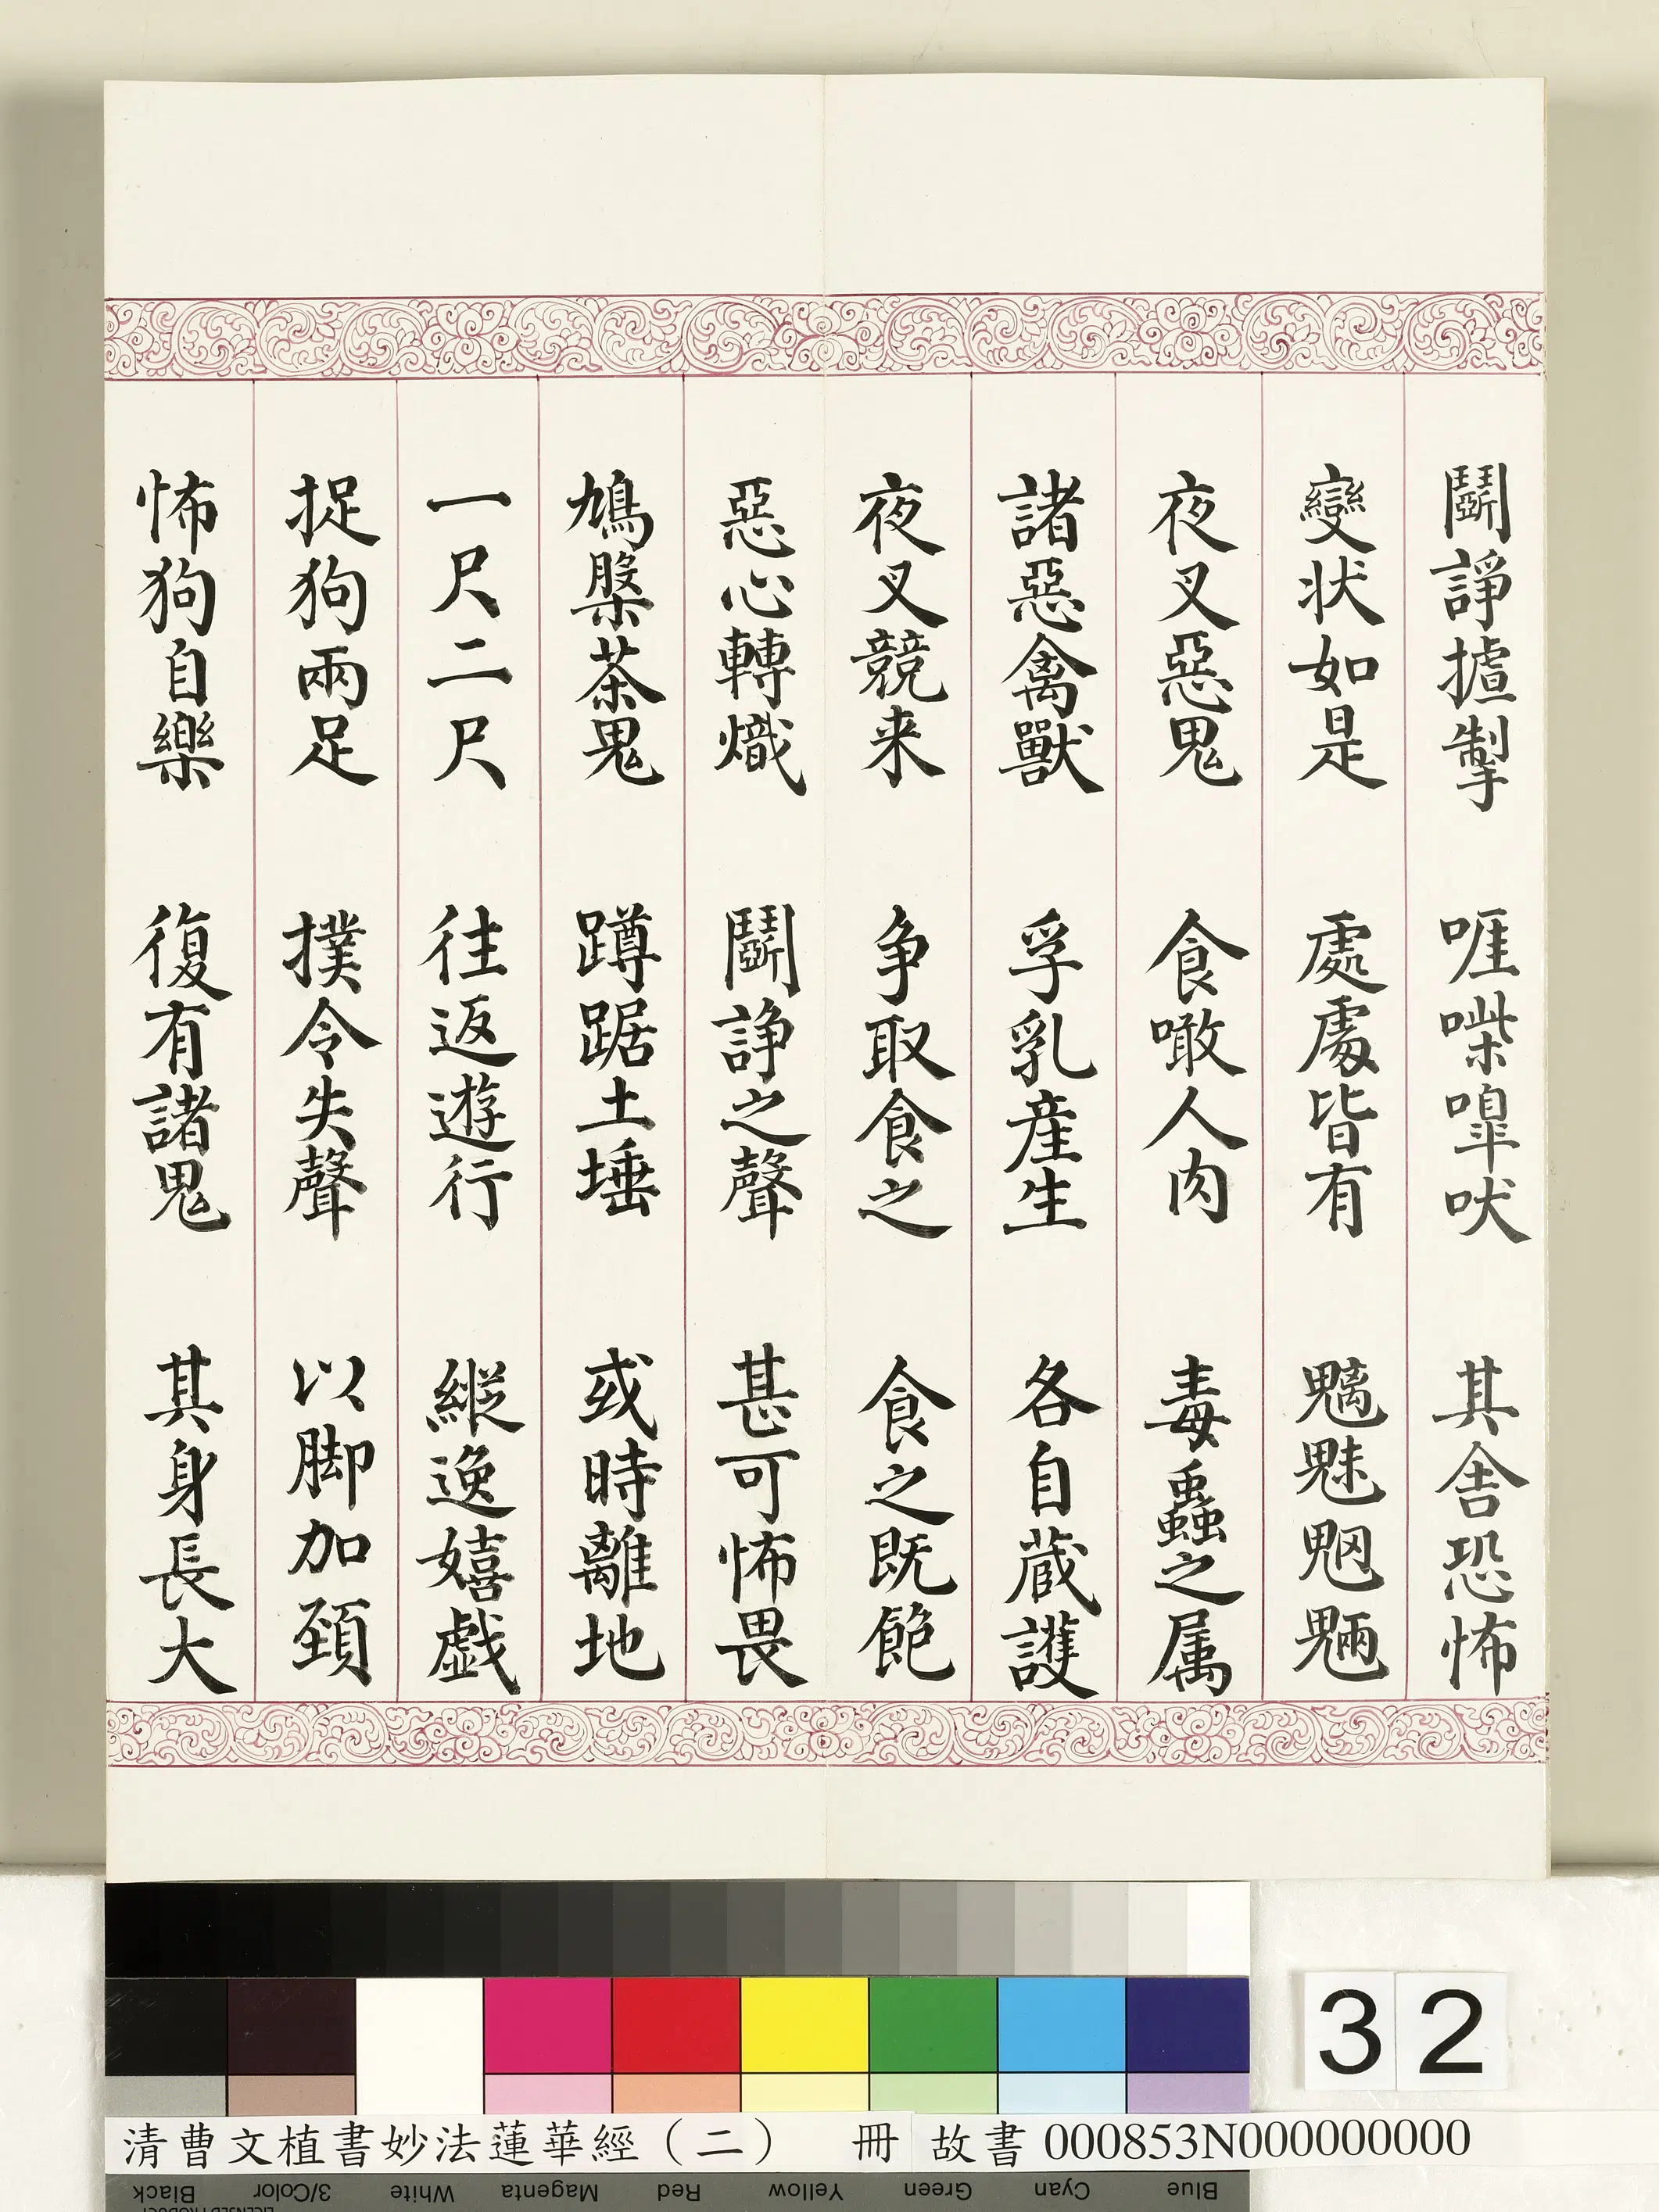 鬪諍摣掣 啀喍嘷吠 其舍恐怖
變状如是 處處皆有 魑魅魍魎
夜叉惡鬼 食噉人肉 毒蟲之属
諸惡禽獸 孚乳産生 各自蔵護
夜叉競来 争取食之 食之既飽
惡心轉熾 鬪諍之聲 甚可怖畏
鳩槃茶鬼 蹲踞土埵 或時離地
一尺二尺 往返遊行 縱逸嬉戲
捉狗兩足 撲令失聲 以脚加頚
怖狗自樂 復有諸鬼 其身長大
32
清曹文植書妙法蓮華經（二） 冊 故書 000853N000000000
Black 3/Color White Magenta Red Yellow Green Cyan Blue